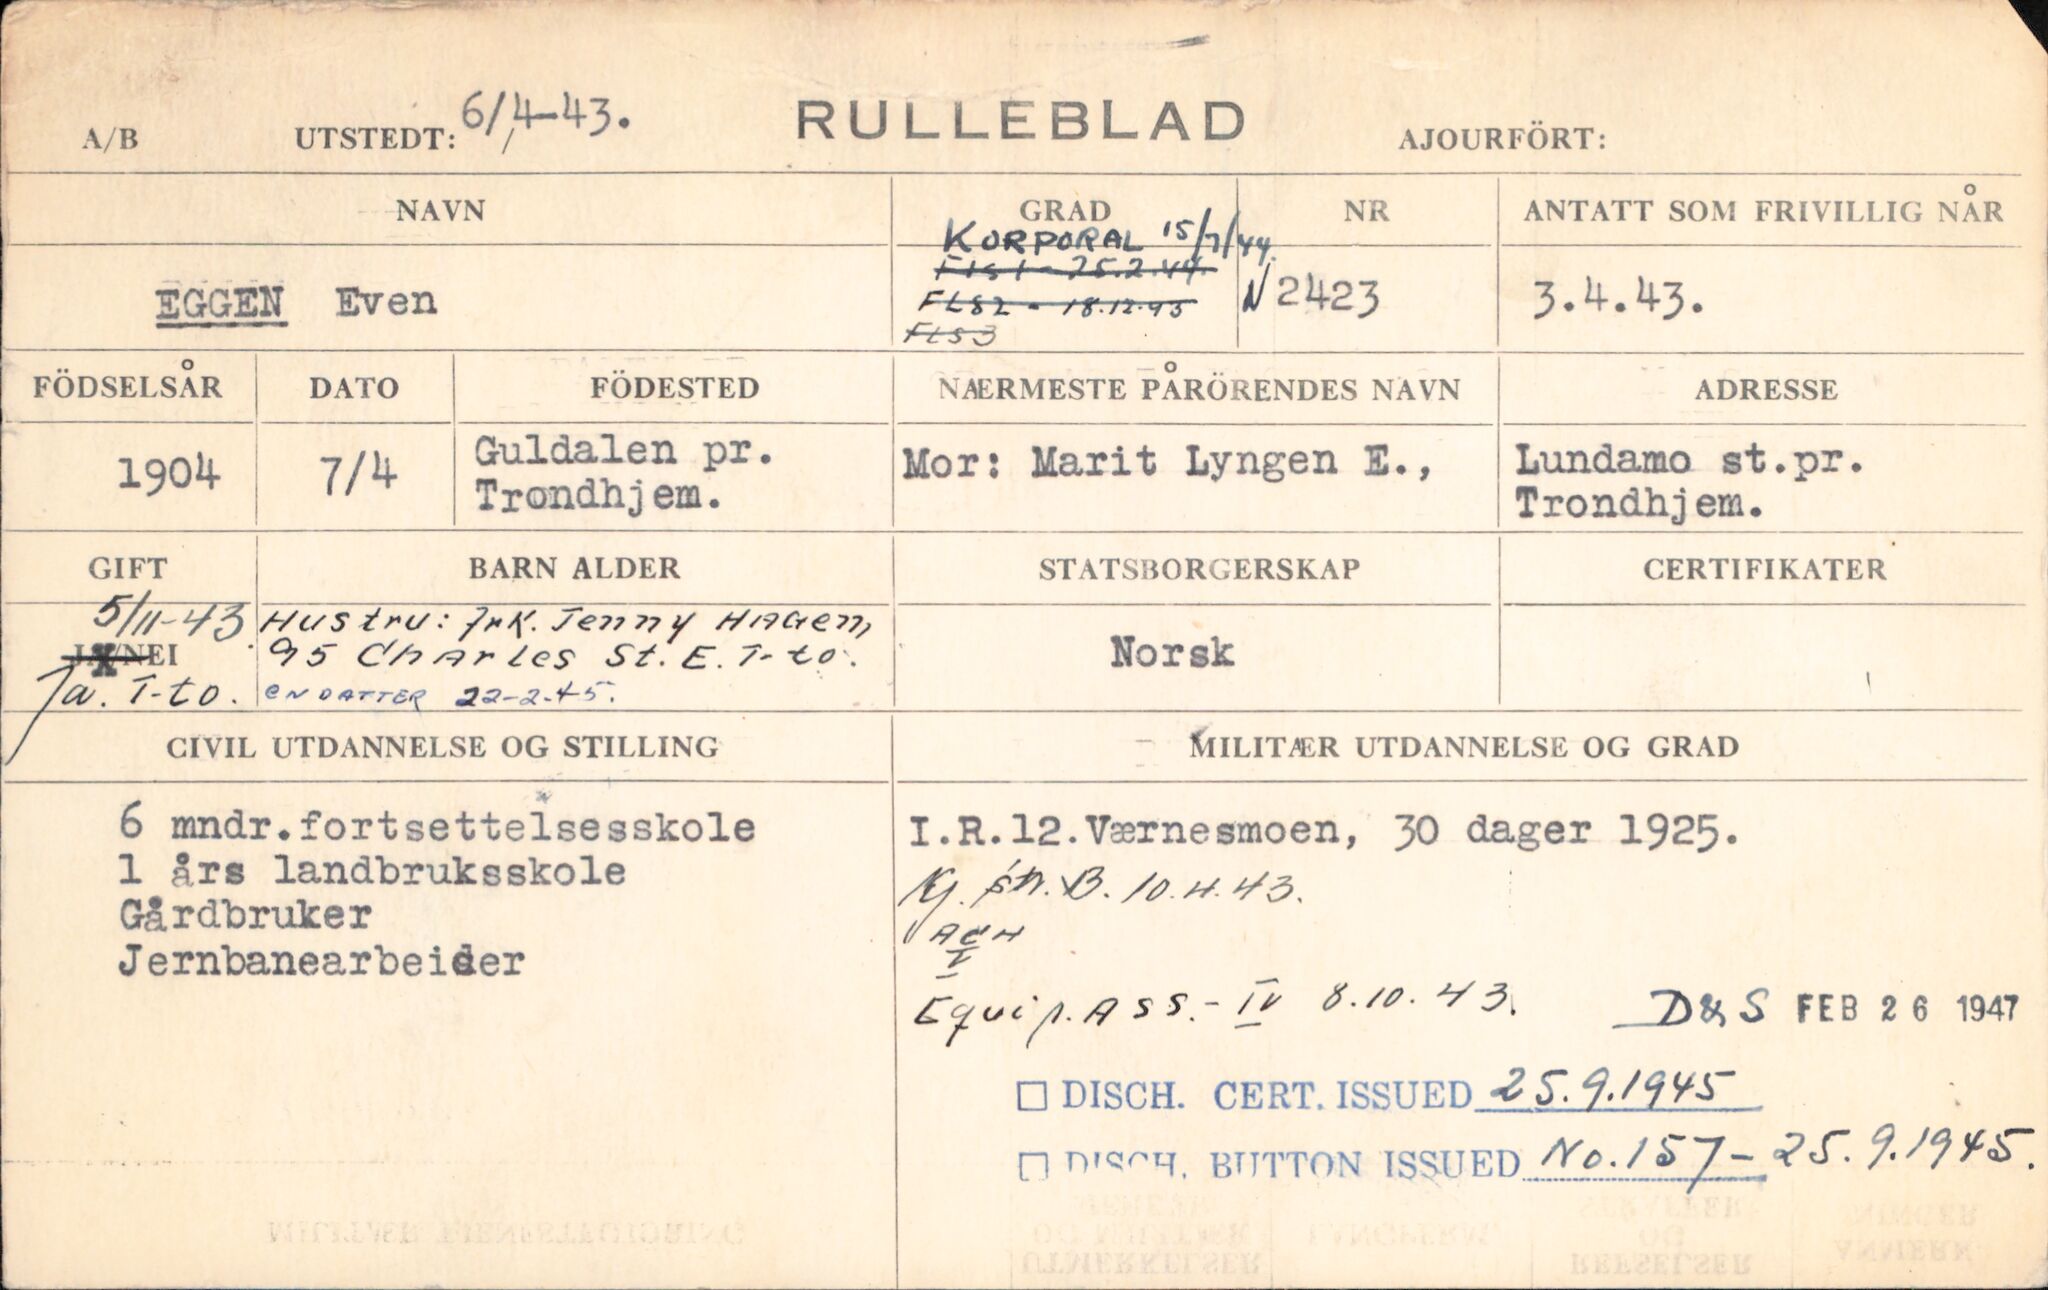 A/B UTSTEDT: 6/4-43. RULLEBLAD AJOURFÖRT:
NAVN GRAD NR ANTATT SOM FRIVILLIG NÅR
KORPORAL 15/7/44.
FLS1 - 25.2.44.
EGGEN Even FLS2 - 18.12.43 N 2423 3.4.43.
FLS3
FÖDSELSÅR DATO FÖDESTED NÆRMESTE PÅRÖRENDES NAVN ADRESSE
1904 7/4 Guldalen pr. Mor: Marit Lyngen E., Lundamo st.pr.
Trondhjem. Trondhjem.
GIFT BARN ALDER STATSBORGERSKAP CERTIFIKATER
5/11-43 Hustru: frk. Jenny Hagen,
JA/NEI 95 Charles St. E. T-to. Norsk
Ja. T-to. en datter 22-2-45.
CIVIL UTDANNELSE OG STILLING MILITÆR UTDANNELSE OG GRAD
6 mndr.fortsettelsesskole I.R.12.Værnesmoen, 30 dager 1925.
1 års landbruksskole B. 10.4.43.
Gårdbruker ACH
Jernbanearbeider I
Equip. Ass. - IV 8.10.43. D&S FEB 26 1947
DISCH. CERT. ISSUED 25.9.1945
DISCH. BUTTON ISSUED No. 157 - 25.9.1945.